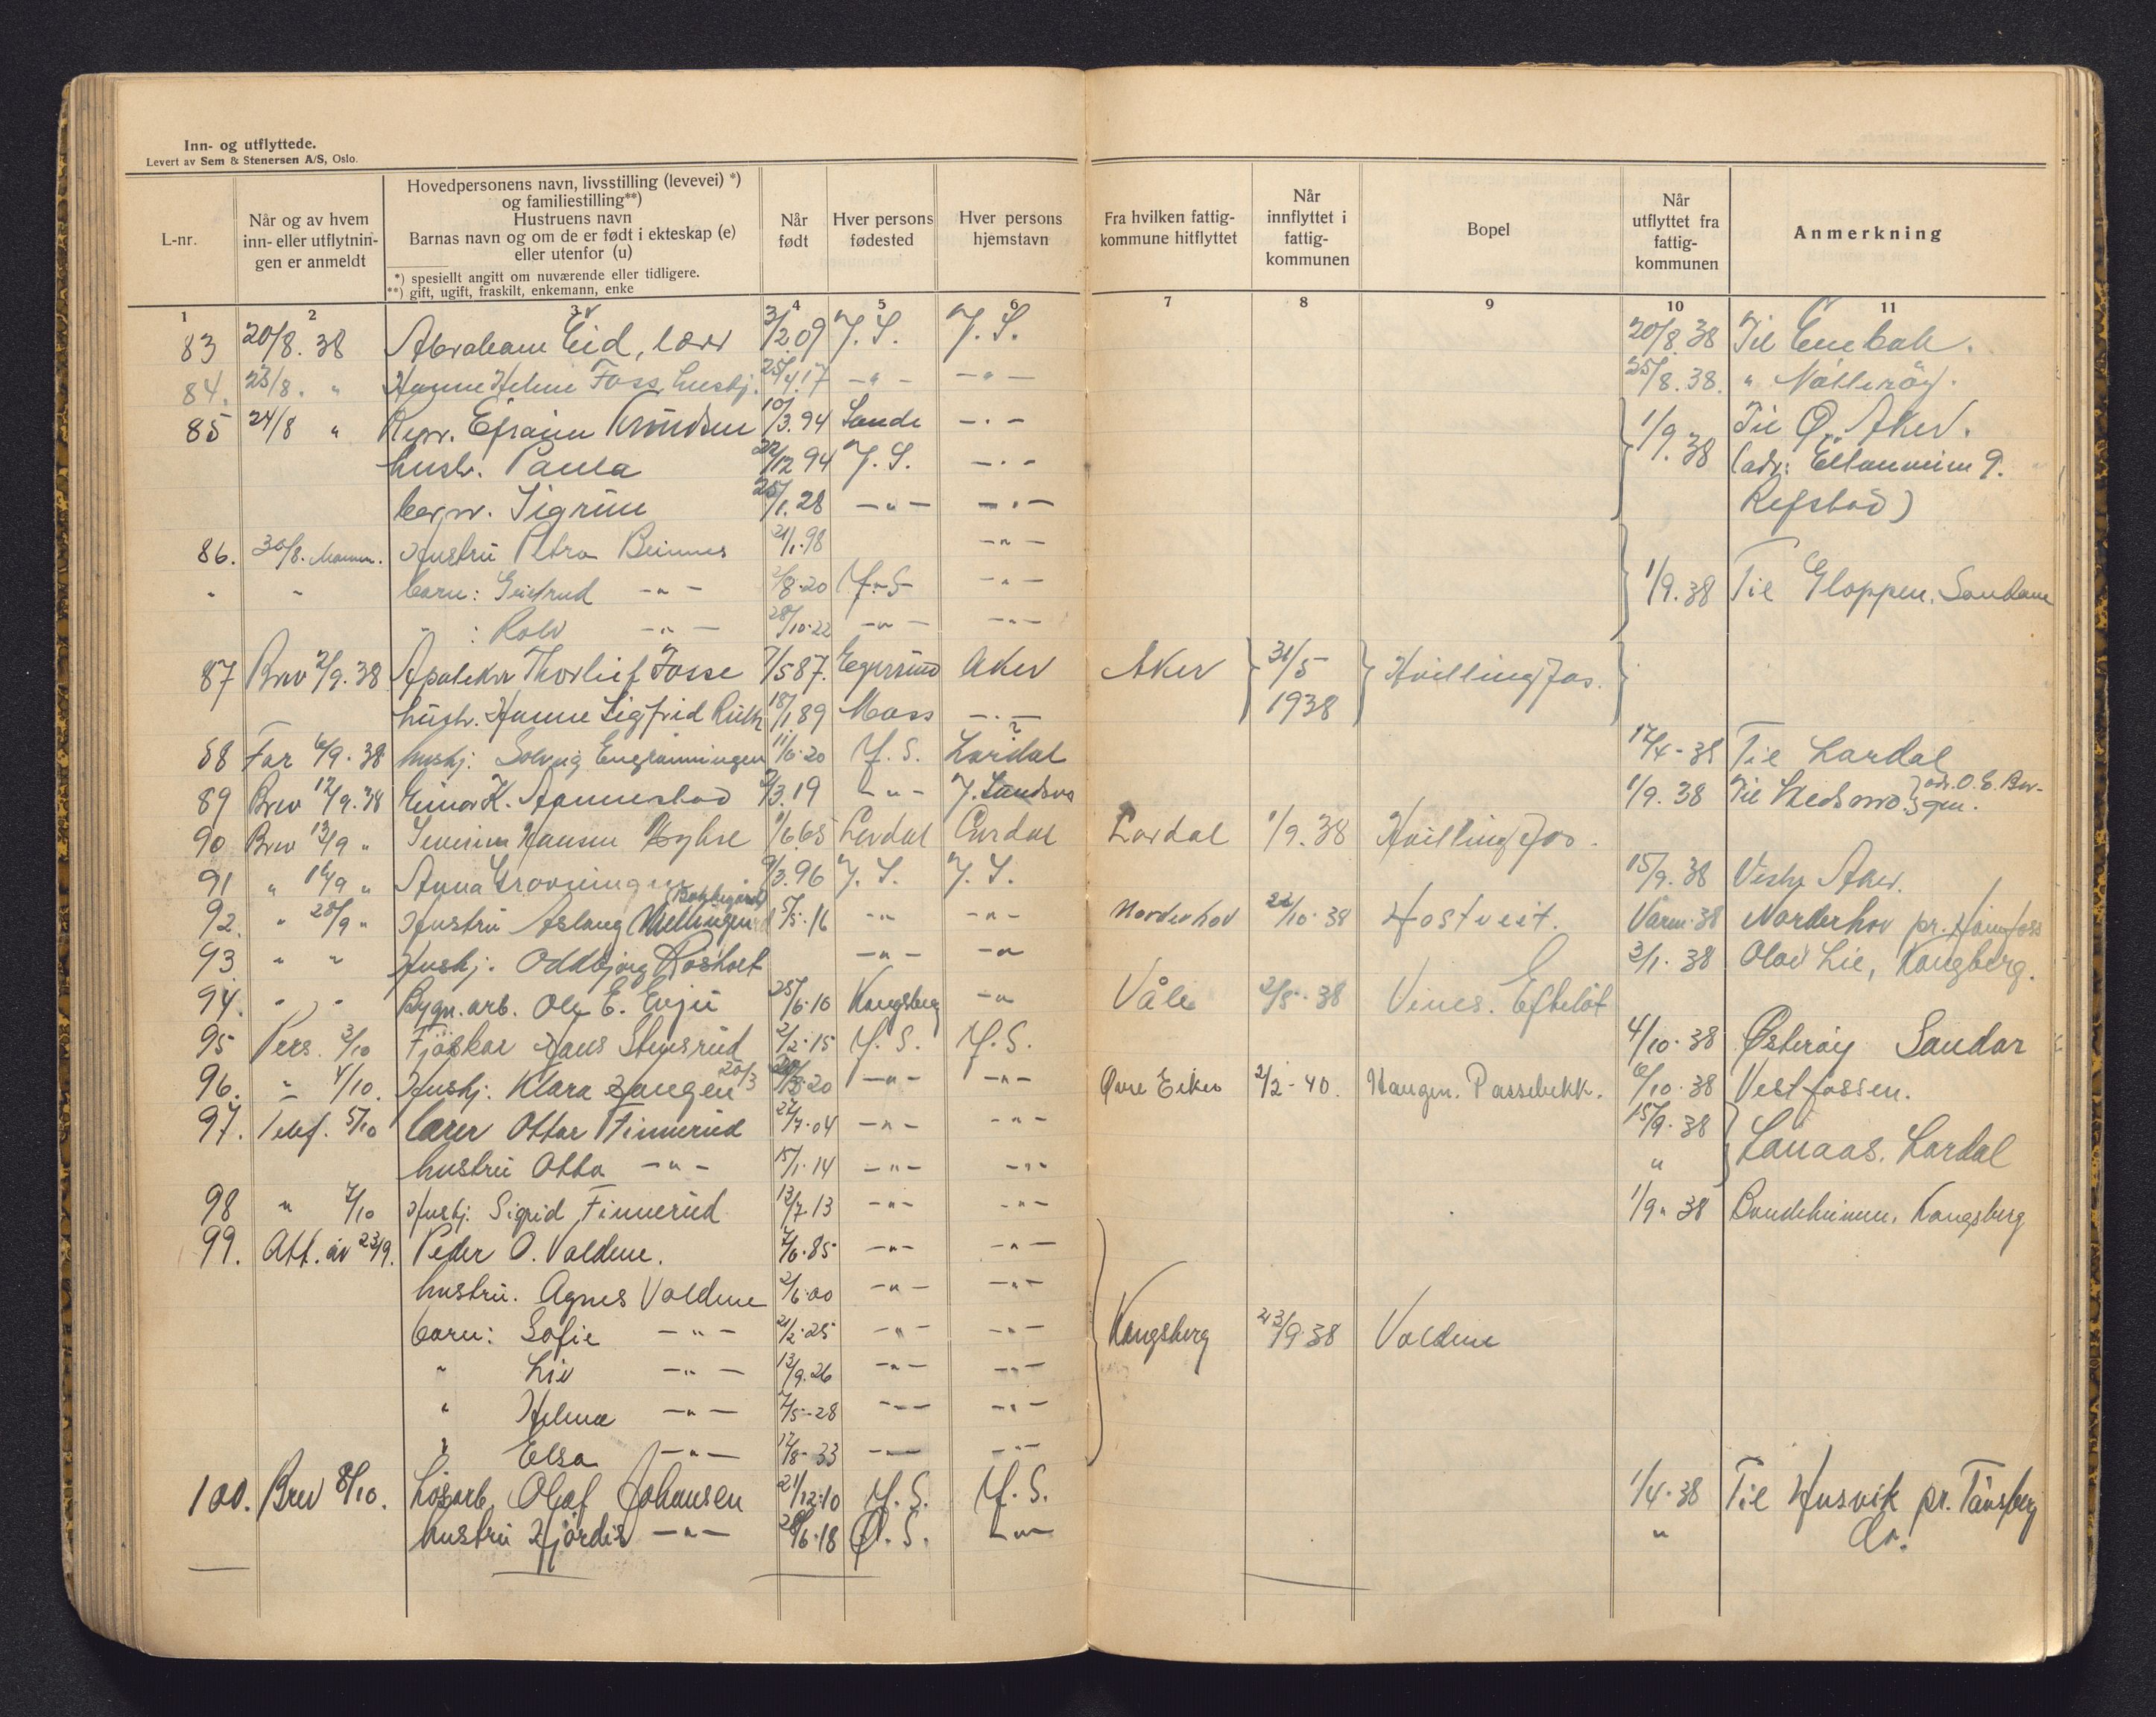 Inn- og utflyttede.
Levert av Sem & Stenersen A/S, Oslo.
L-nr.
Når og av hvem
inn- eller utflytnin-
gen er anmeldt
Hovedpersonens navn, livsstilling (levevei) *)
og familiestilling**)
Hustruens navn
Barnas navn og om de er født i ekteskap (e)
eller utenfor (u)
*) spesiellt angitt om nuværende eller tidligere.
**) gift, ugift, fraskilt, enkemann, enke
Når
født
Hver persons
fødested
Hver persons
hjemstavn
Fra hvilken fattig-
kommune hitflyttet
Når
innflyttet i
fattig-
kommunen
Bopel
Når
utflyttet fra
fattig-
kommunen
Anmerkning
1 2 3 4 5 6 7 8 9 10 11
83 20/8. 38 Abraham Eid, lærer 3/2 09 Y. S. Y. S. 20/8. 38 Til Enebak.
84. 23/8. " Hanne Helene Foss, hushj. 25/4.17 -"- -"- 25/8.38. " Nøtterøy.
85 24/8 " Repr. Efraim Knudsen 10/3.94 Sande -"- 1/9.38 Til Ø. Aker.
hustr. Paula 22/12 94 Y. S. -"- (adr: 9.
barn. Sigrun 25/1.28 -"- -"- Refstad)
86. 30/8. Hustru Petra 21/1.98 -"-
" " barn: -"- 2/8.20 Y. S -"- 1/9.38 Til Gloppen. Sandane
" : Rolv -"- 28/10.22 -"- -"-
87 Brev 2/9.38 Apoteker Thorlief Fosse 7/5 87. Egersund Aker Aker 31/5 Hvillingfos.
hustr. Hanne Sigfrid Ruth 18/1 89 Moss -"- 1938
88 Far 6/9.38 hushj: Solveig 11/6.20 Y. S. Lardal ? 17/4-38 Til Lardal
89 Brev 12/9.38 Einar K. Aannestad 2/3.19 -"- Y. Sandsv 1/9.38 Til Skedsmo. adr. O. E. Ber-
gen.
90 Brev 13/9 " Hansen 1/6.65 Lardal Lardal Lardal 1/9.38 Hvillingfos.
91 " 16/9 " Anna Grovningen 9/3.96 Y. S. Y. S. 15/9.38 Aker.
92. " 28/9 " Hustru Aslaug 5/5.16 -"- -"- Norderhov 22/10.38 Hostveit. Våren.38 Norderhov pr. Hønefoss
93 " " Hushj. Oddbjørg Rosholt -"- -"- 2/1.38 Olav Lie, Kongberg.
94. " " Bygn.arb. Ole E. Evju 25/6.10 Kongsberg -"- Våle 2/5.38 Vines. Efteløt
95 Pers. 3/10 Fjøskar Hans Stensrud 2/2.15 Y. S. Y. S. 4/10.38 Østerøy Sandar
96. " 4/10. Hushj. Klara Haugen 20/3 20/3.20 -"- -"- Øvre Eiker 2/2-40. Haugen. Passebekk. 6/10.38 Vestfossen.
97. Telef. 5/10 lærer Ottar Finnerud 27/7.04 -"- -"- 15/9.38
hustru Otta -"- 15/1.14 -"- -"- " Lanaas. Lardal
98 " 7/10 Hushj. Sigrid Finnerud 13/7.13 -"- -"- 1/9.38 Bondeheimen, Kongsberg
99. Att. av 23/9. Peder O. Voldene. 7/6.85 -"- -"-
hustru. Agnes Voldene 2/6.00 -"- -"-
barn: Sofie -"- 21/2.25 -"- -"- Kongsberg 23/9.38 Voldene
" Liv -"- 13/9.26 -"- -"-
" Helma -"- 7/5-28 -"- -"-
" Elsa -"- 17/8-33 -"- -"-
100. Brev 8/10. Løsarb. Olaf Johansen 21/12.10 Y. S. Y. S. 1/4.38 Til Husvik pr. Tønsberg
hustru Hjørdis -"- 28/6.18 Ø. S. -"- "